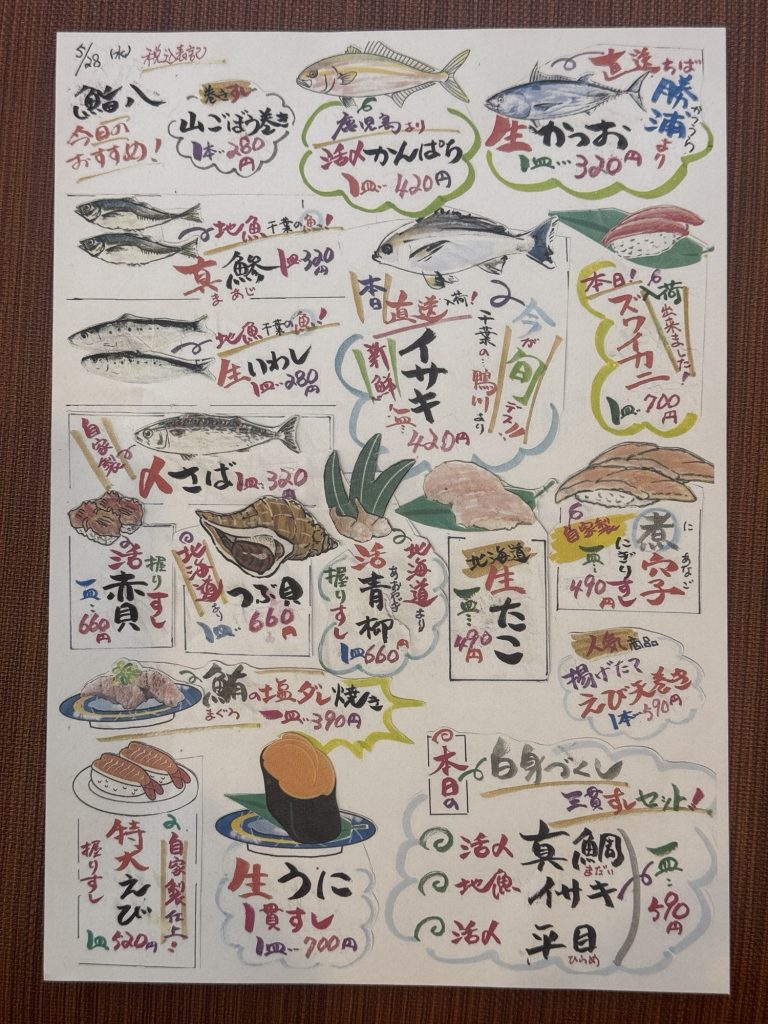 5/28 (水) 税込表記
鮨八
今日の
おすすめ!
巻きすし
山ごぼう巻き
1本…280円
鹿児島より
活〆かんぱち
1皿…420円
直送ちば
勝浦より
かつうら
生かつお
1皿…320円
地魚千葉の魚!
真鯵 1皿320円
まあじ
地魚千葉の魚!
生いわし
1皿…280円
本日
直送入荷!
新鮮
イサキ
一皿…420円
千葉の…鴨川より
今が旬デス!!
本日!
入荷出来ました!
ズワイカニ
1皿…700円
自家製
〆さば 1皿…320円
活赤貝
握りすし
一皿…660円
北海道より
つぶ貝
1皿…660円
北海道より
活青柳
あおやぎ
握りすし
1皿660円
北海道
生たこ
一皿…490円
自家製
煮穴子
にあなご
にぎりすし
一皿…490円
鮪の塩ダレ焼き
まぐろ
一皿…390円
人気商品
揚げたて
えび天巻き
1本…590円
自家製仕上
特大えび
握りすし
1皿520円
生うに
1貫すし
1皿…700円
本日の
白身づくし
三貫すしセット!
活〆 真鯛
まだい
地魚 イサキ
活〆 平目
ひらめ
一皿…590円